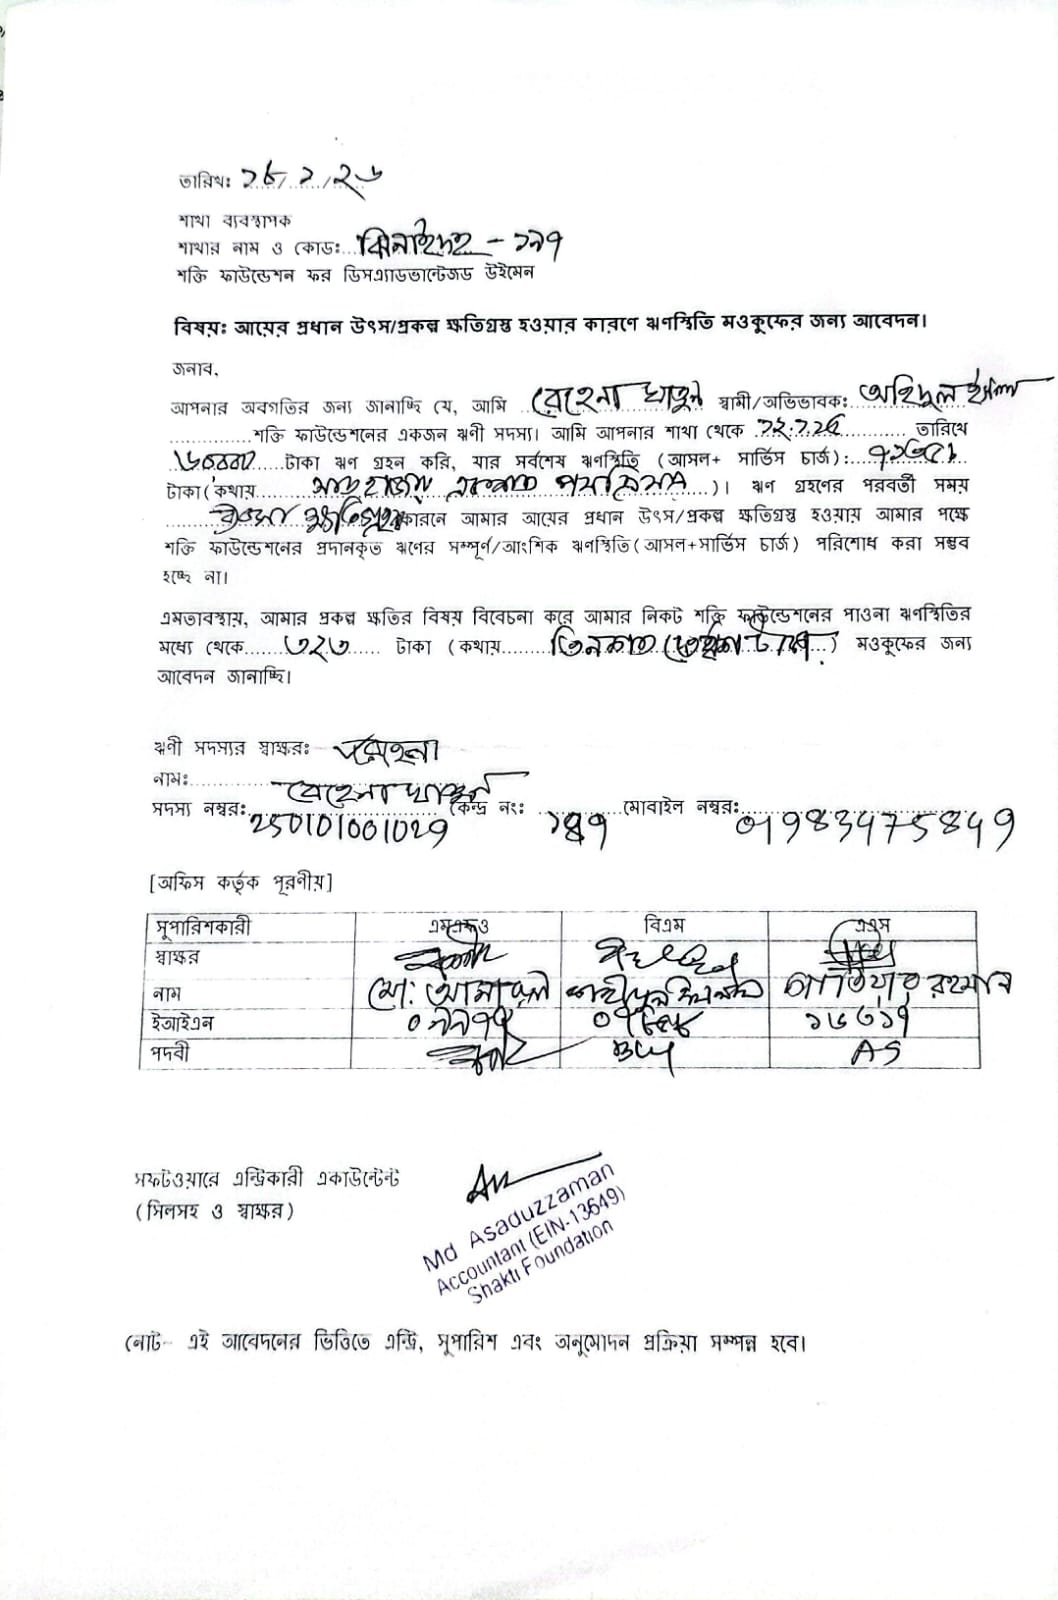 তারিখঃ ১৮/১/২৬
শাখা ব্যবস্থাপক
শাখার নাম ও কোডঃ ঝিনাইদহ - ১৯৭
শক্তি ফাউন্ডেশন ফর ডিসএ্যাডভান্টেজড উইমেন
বিষয়ঃ আয়ের প্রধান উৎস/প্রকল্প ক্ষতিগ্রস্ত হওয়ার কারণে ঋণস্থিতি মওকুফের জন্য আবেদন।
জনাব,
আপনার অবগতির জন্য জানাচ্ছি যে, আমি রেহেনা খাতুন স্বামী/অভিভাবক: অহিদুল ইসলাম
শক্তি ফাউন্ডেশনের একজন ঋণী সদস্য। আমি আপনার শাখা থেকে ১২.১.২৫ তারিখে
৬০০০০ টাকা ঋণ গ্রহন করি, যার সর্বশেষ ঋণস্থিতি (আসল+ সার্ভিস চার্জ):
টাকা (কথায় সাত হাজার একশত )। ঋণ গ্রহণের পরবর্তী সময়
ব্যবসা ক্ষতিগ্রস্ত কারনে আমার আয়ের প্রধান উৎস/প্রকল্প ক্ষতিগ্রস্ত হওয়ায় আমার পক্ষে
শক্তি ফাউন্ডেশনের প্রদানকৃত ঋণের সম্পূর্ণ/আংশিক ঋণস্থিতি (আসল+সার্ভিস চার্জ) পরিশোধ করা সম্ভব
হচ্ছে না।
এমতাবস্থায়, আমার প্রকল্প ক্ষতির বিষয় বিবেচনা করে আমার নিকট শক্তি ফাউন্ডেশনের পাওনা ঋণস্থিতির
মধ্যে থেকে ৩২৩ টাকা (কথায় তিনশত তেইশ টাকা) মওকুফের জন্য
আবেদন জানাচ্ছি।
ঋণী সদস্যর স্বাক্ষরঃ রেহেনা
নামঃ রেহেনা খাতুন
সদস্য নম্বরঃ 250101001029 কেন্দ্র নংঃ ১৪৭ মোবাইল নম্বরঃ 01983475849
[অফিস কর্তৃক পূরণীয়]
সুপারিশকারী এমএফও বিএম এএস
স্বাক্ষর
নাম মো: শহীদুল ইসলাম আতিয়ার রহমান
ইআইএন ১৬৩১৭
পদবী BM AS
সফটওয়ারে এন্ট্রিকারী একাউন্টেন্ট
(সিলসহ ও স্বাক্ষর)
Md Asaduzzaman
Accountant (EIN-13649)
Shakti Foundation
নোট- এই আবেদনের ভিত্তিতে এন্ট্রি, সুপারিশ এবং অনুমোদন প্রক্রিয়া সম্পন্ন হবে।